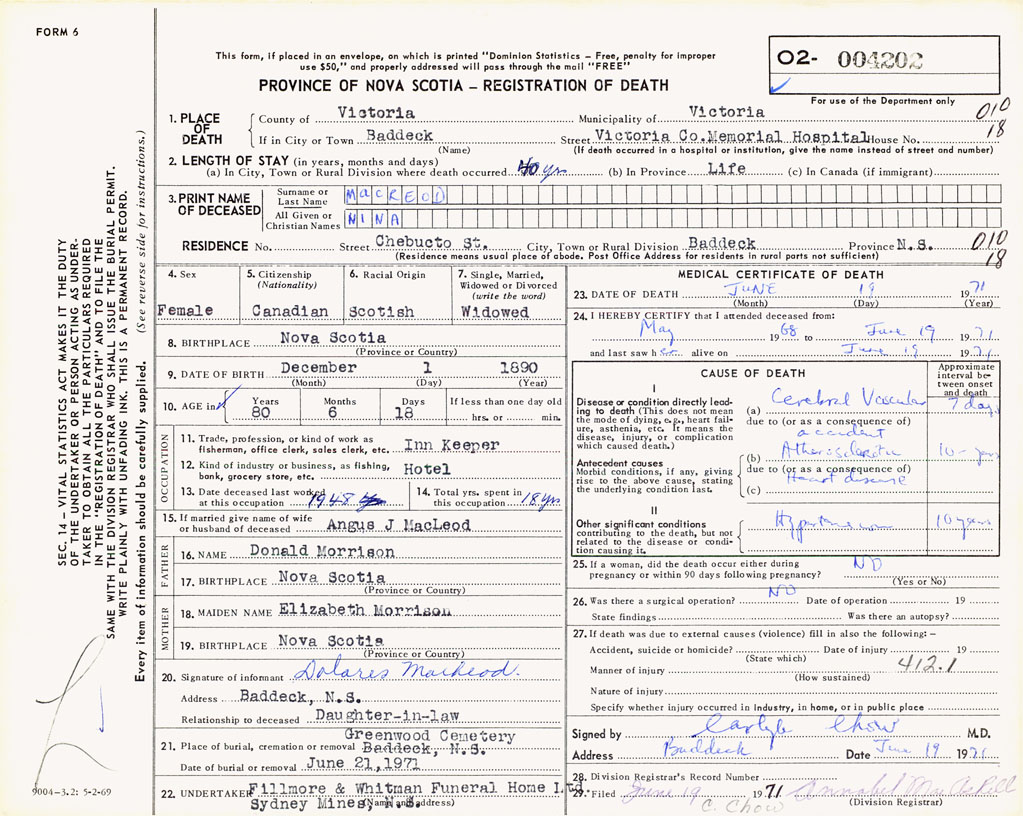 FORM 6
This form, if placed in an envelope, on which is printed "Dominion Statistics – Free, penalty for improper
use $50," and properly addressed will pass through the mail "FREE"
PROVINCE OF NOVA SCOTIA – REGISTRATION OF DEATH
O2- 004202
For use of the Department only
1. PLACE OF DEATH
County of Victoria Municipality of Victoria 010
If in City or Town Baddeck Street Victoria Co.Memorial Hospital House No. 18
(Name) (If death occurred in a hospital or institution, give the name instead of street and number)
2. LENGTH OF STAY (in years, months and days)
(a) In City, Town or Rural Division where death occurred 40 yrs (b) In Province Life (c) In Canada (if immigrant)
3. PRINT NAME OF DECEASED
Surname or Last Name MacLEOD
All Given or Christian Names NINA
RESIDENCE No. Street Chebucto St. City, Town or Rural Division Baddeck Province N.S. 010
(Residence means usual place of abode. Post Office Address for residents in rural parts not sufficient) 18
4. Sex
Female
5. Citizenship
(Nationality)
Canadian
6. Racial Origin
Scotish
7. Single, Married,
Widowed or Divorced
(write the word)
Widowed
8. BIRTHPLACE Nova Scotia
(Province or Country)
9. DATE OF BIRTH December 1 1890
(Month) (Day) (Year)
10. AGE in Years Months Days If less than one day old
80 6 18 hrs. or min.
OCCUPATION
11. Trade, profession, or kind of work as
fisherman, office clerk, sales clerk, etc. Inn Keeper
12. Kind of industry or business, as fishing,
bank, grocery store, etc. Hotel
13. Date deceased last worked
at this occupation 1948
14. Total yrs. spent in
this occupation 18 yrs
15. If married give name of wife
or husband of deceased Angus J MacLeod
FATHER
16. NAME Donald Morrison
17. BIRTHPLACE Nova Scotia
(Province or Country)
MOTHER
18. MAIDEN NAME Elizabeth Morrison
19. BIRTHPLACE Nova Scotia
(Province or Country)
20. Signature of informant Dolores MacLeod.
Address Baddeck, N.S.
Relationship to deceased Daughter-in-law
Greenwood Cemetery
21. Place of burial, cremation or removal Baddeck, N.S.
Date of burial or removal June 21,1971
22. UNDERTAKER Fillmore & Whitman Funeral Home Ltd.
Sydney Mines, N.S. (Name and address)
MEDICAL CERTIFICATE OF DEATH
23. DATE OF DEATH JUNE 19 1971
(Month) (Day) (Year)
24. I HEREBY CERTIFY that I attended deceased from:
May 1968 to June 19 1971
and last saw her alive on June 19 1971
CAUSE OF DEATH
Approximate
interval be-
tween onset
and death
I
Disease or condition directly lead-
ing to death (This does not mean
the mode of dying, e.g., heart fail-
ure, asthenia, etc. It means the
disease, injury, or complication
which caused death.)
(a) Cerebral Vascular 7 days
due to (or as a consequence of)
accident
Antecedent causes
Morbid conditions, if any, giving
rise to the above cause, stating
the underlying condition last.
(b) Atherosclerotic 10 - years
due to (or as a consequence of)
Heart disease
(c)
II
Other significant conditions
contributing to the death, but not
related to the disease or condi-
tion causing it.
Hypertension 10 years
25. If a woman, did the death occur either during
pregnancy or within 90 days following pregnancy? NO
(Yes or No)
26. Was there a surgical operation? NO Date of operation 19
State findings Was there an autopsy?
27. If death was due to external causes (violence) fill in also the following: –
Accident, suicide or homicide? Date of injury 19
(State which)
Manner of injury 412.1
(How sustained)
Nature of injury
Specify whether injury occurred in industry, in home, or in public place
Signed by Carlyle Chow M.D.
Address Baddeck Date June 19 1971
28. Division Registrar's Record Number
29. Filed June 19 1971 Annabel MacAskill
C. Chow (Division Registrar)
SEC. 14 – VITAL STATISTICS ACT MAKES IT THE DUTY
OF THE UNDERTAKER OR PERSON ACTING AS UNDER-
TAKER TO OBTAIN ALL THE PARTICULARS REQUIRED
IN THE "REGISTRATION OF DEATH" AND TO FILE THE
SAME WITH THE DIVISION REGISTRAR WHO SHALL ISSUE THE BURIAL PERMIT.
WRITE PLAINLY WITH UNFADING INK. THIS IS A PERMANENT RECORD.
Every item of information should be carefully supplied. (See reverse side for instructions.)
9004-3.2: 5-2-69